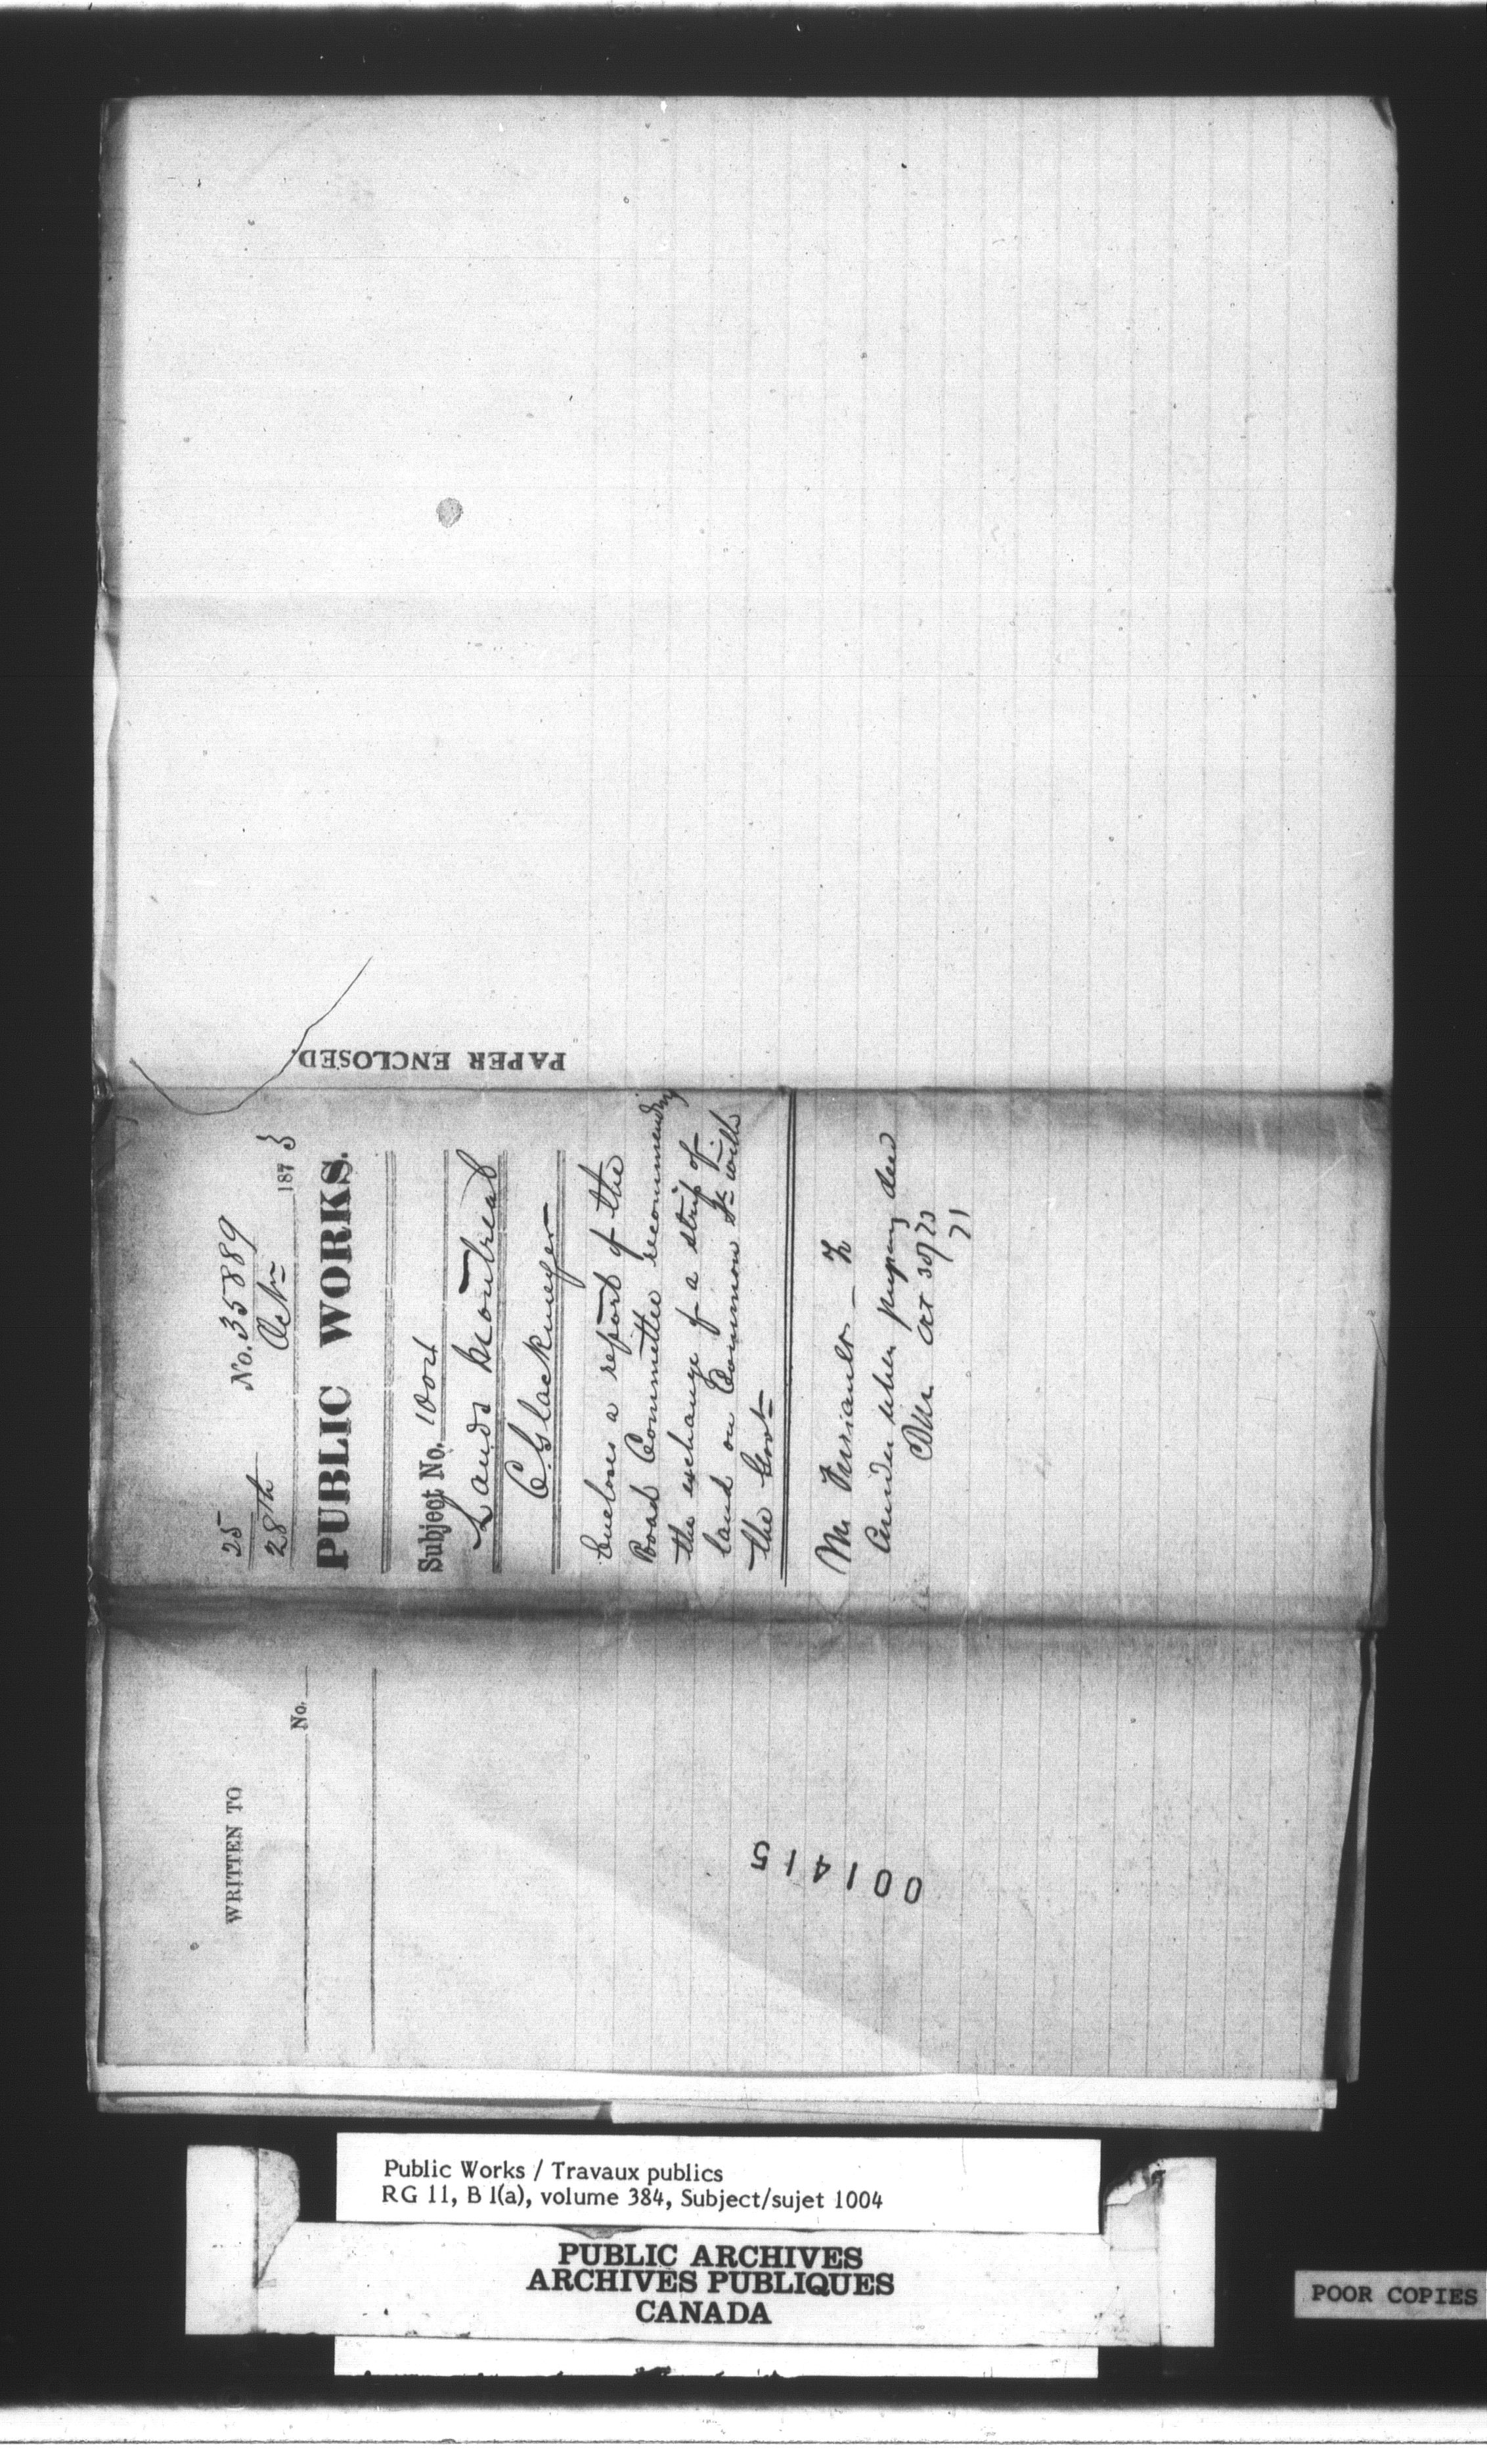 WRITTEN TO
No.
001415
25 No. 35889
28th Octr 1873
PUBLIC WORKS.
Subject No. 1004
Lands Montreal
C. Glackmeyer
Encloses a report of the
Road Committee recommending
the exchange of a strip of
land on Common St. with
the Govt
Mr
when deed
Oct 30/73
71
PAPER ENCLOSED.
Public Works / Travaux publics
RG 11, B 1(a), volume 384, Subject/sujet 1004
PUBLIC ARCHIVES
ARCHIVES PUBLIQUES
CANADA
POOR COPIES